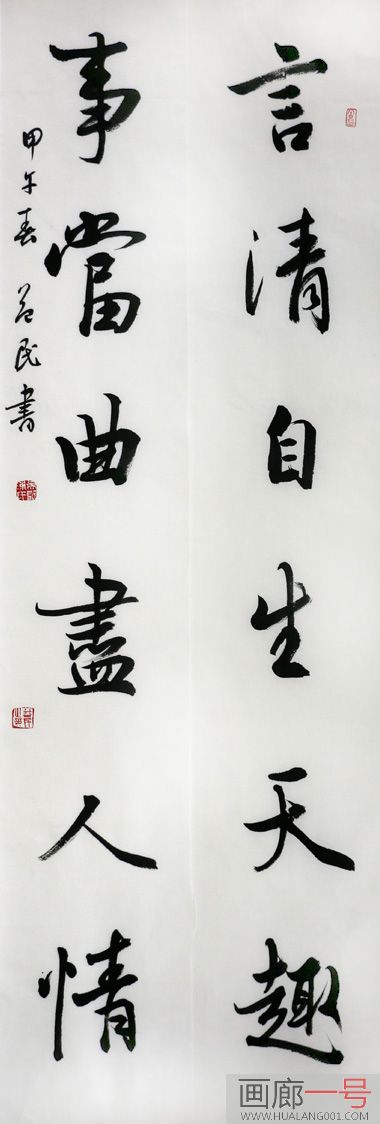 言清自生天趣
事當曲盡人情
甲午春 益民書
画廊一号
WWW.HUALANG001.COM